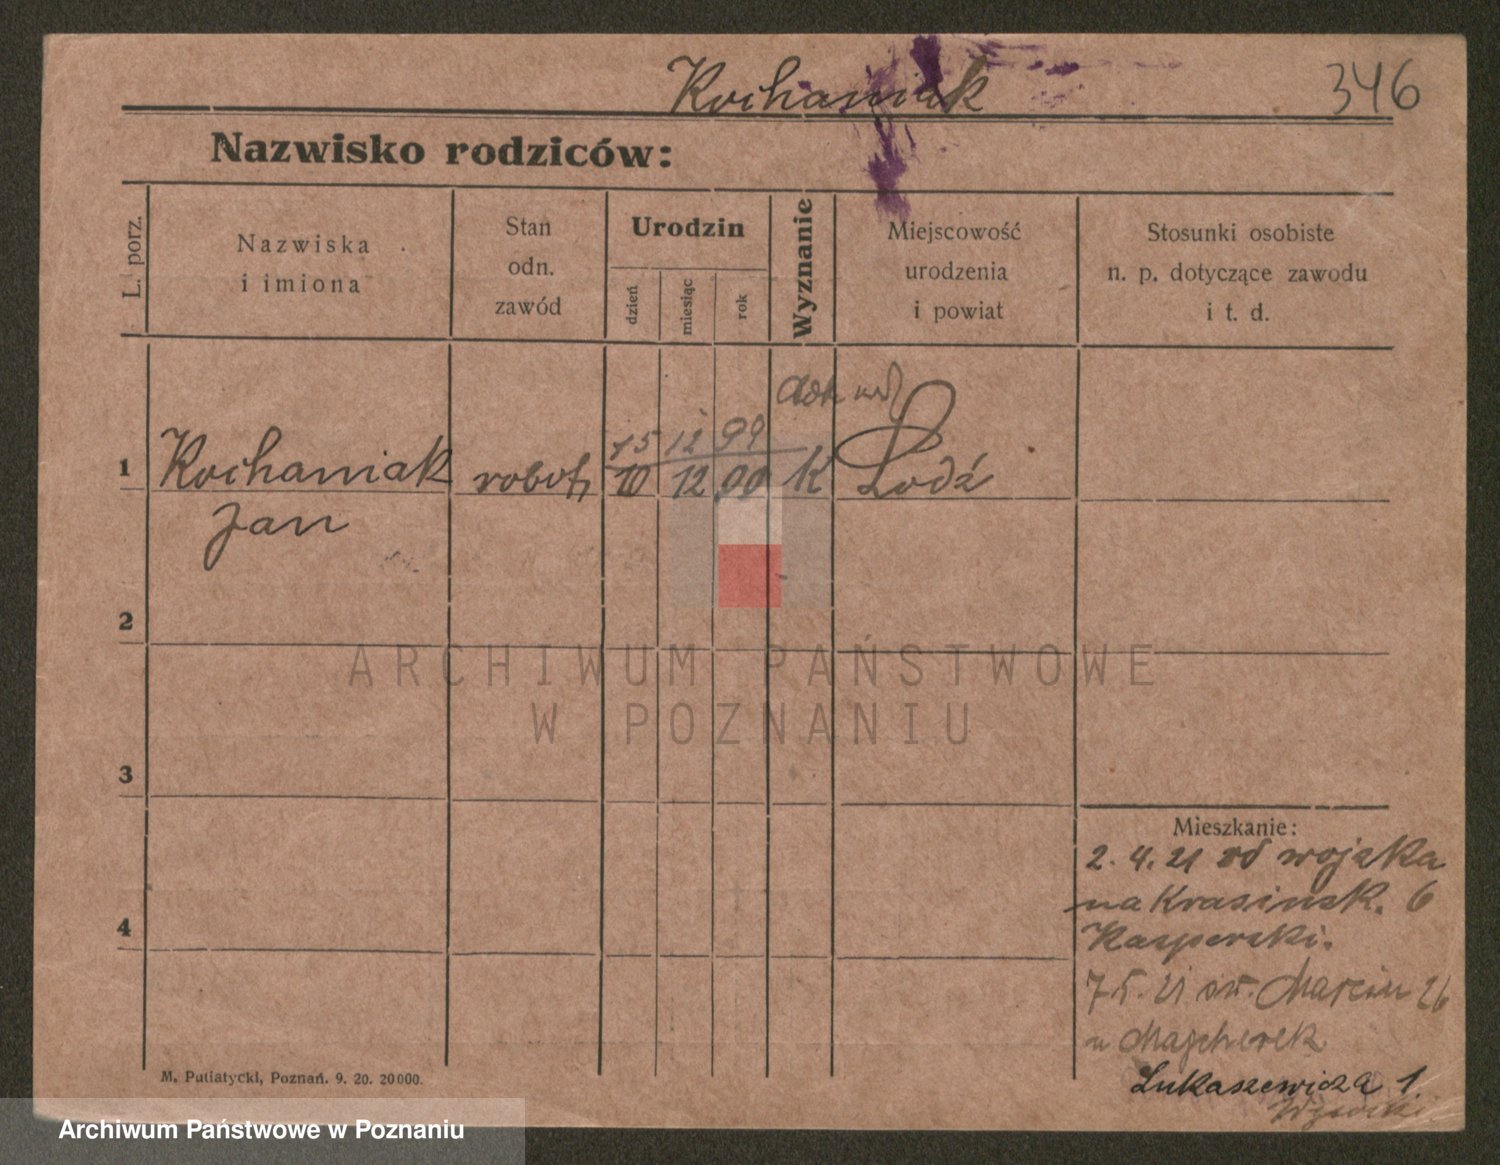 Kochaniak 346
Nazwisko rodziców:
L. porz.
Nazwiska
i imiona
Stan
odn.
zawód
Urodzin
dzień
miesiąc
rok
Wyznanie
Miejscowość
urodzenia
i powiat
Stosunki osobiste
n. p. dotyczące zawodu
i t. d.
15 12 99
1 Kochaniak robot. 10 12 00 K Łódź
Jan
2
ARCHIWUM PAŃSTWOWE
W POZNANIU
3
Mieszkanie:
2. 4. 21 od wojska
na Krasinsk. 6
4 Kasperski.
7 5. 21 św. Marcin 26
u Majcherek
Lukaszewicza 1.
M. Putiatycki, Poznań. 9. 20. 20000.
Archiwum Państwowe w Poznaniu